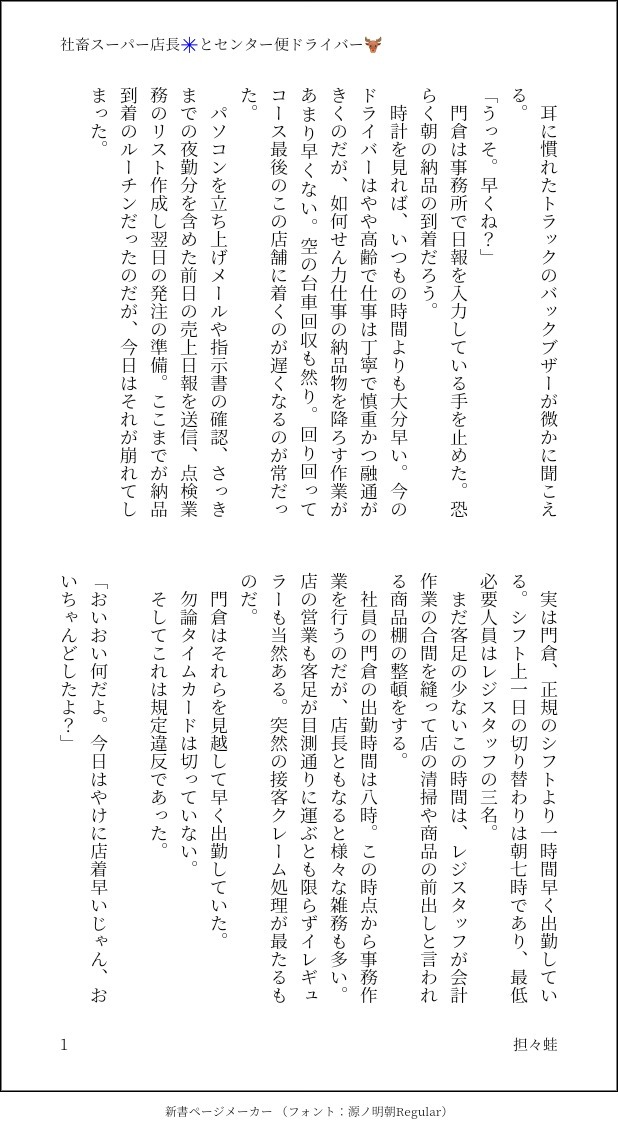 社畜スーパー店長✳️とセンター便ドライバー🐮
　耳に慣れたトラックのバックブザーが微かに聞こえ
る。
「うっそ。早くね？」
　門倉は事務所で日報を入力している手を止めた。恐
らく朝の納品の到着だろう。
　時計を見れば、いつもの時間よりも大分早い。今の
ドライバーはやや高齢で仕事は丁寧で慎重かつ融通が
きくのだが、如何せん力仕事の納品物を降ろす作業が
あまり早くない。空の台車回収も然り。回り回って
コース最後のこの店舗に着くのが遅くなるのが常だっ
た。
　パソコンを立ち上げメールや指示書の確認、さっき
までの夜勤分を含めた前日の売上日報を送信、点検業
務のリスト作成し翌日の発注の準備。ここまでが納品
到着のルーチンだったのだが、今日はそれが崩れてし
まった。
　実は門倉、正規のシフトより一時間早く出勤してい
る。シフト上一日の切り替わりは朝七時であり、最低
必要人員はレジスタッフの三名。
　まだ客足の少ないこの時間は、レジスタッフが会計
作業の合間を縫って店の清掃や商品の前出しと言われ
る商品棚の整頓をする。
　社員の門倉の出勤時間は八時。この時点から事務作
業を行うのだが、店長ともなると様々な雑務も多い。
店の営業も客足が目測通りに運ぶとも限らずイレギュ
ラーも当然ある。突然の接客クレーム処理が最たるも
のだ。
　門倉はそれらを見越して早く出勤していた。
　勿論タイムカードは切っていない。
　そしてこれは規定違反であった。
「おいおい何だよ。今日はやけに店着早いじゃん、お
いちゃんどしたよ？」
担々蛙
1
新書ページメーカー（フォント：源ノ明朝Regular）